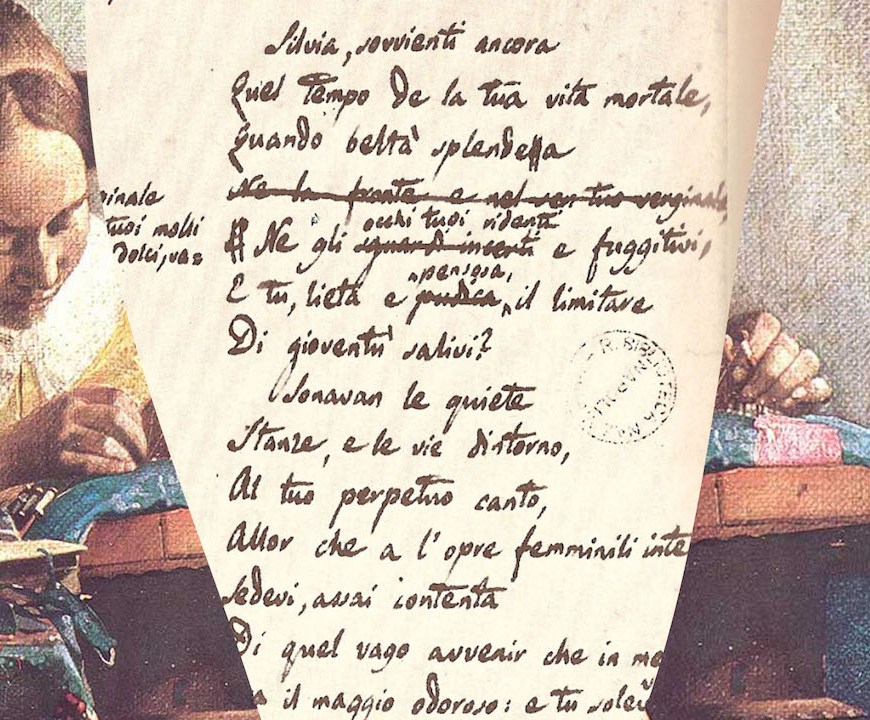 Silvia, sovvienti ancora
Quel tempo de la tua vita mortale,
Quando beltà splendea
Ne la fronte e nel sen tuo verginale
inale
tuoi molli
dolci, va=
occhi tuoi ridenti
Ne gli sguardi incerti e fuggitivi,
pensosa,
E tu, lieta e pudica, il limitare
Di gioventù salivi?
Sonavan le quiete
Stanze, e le vie dintorno,
Al tuo perpetuo canto,
Allor che a l'opre femminili inte
Sedevi, assai contenta
Di quel vago avvenir che in me
a il maggio odoroso: e tu sole
R. BIBLIOTECA